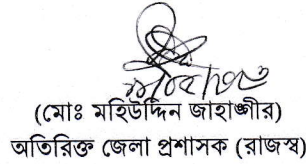 (মোঃ মহিউদ্দিন জাহাঙ্গীর)
অতিরিক্ত জেলা প্রশাসক (রাজস্ব)